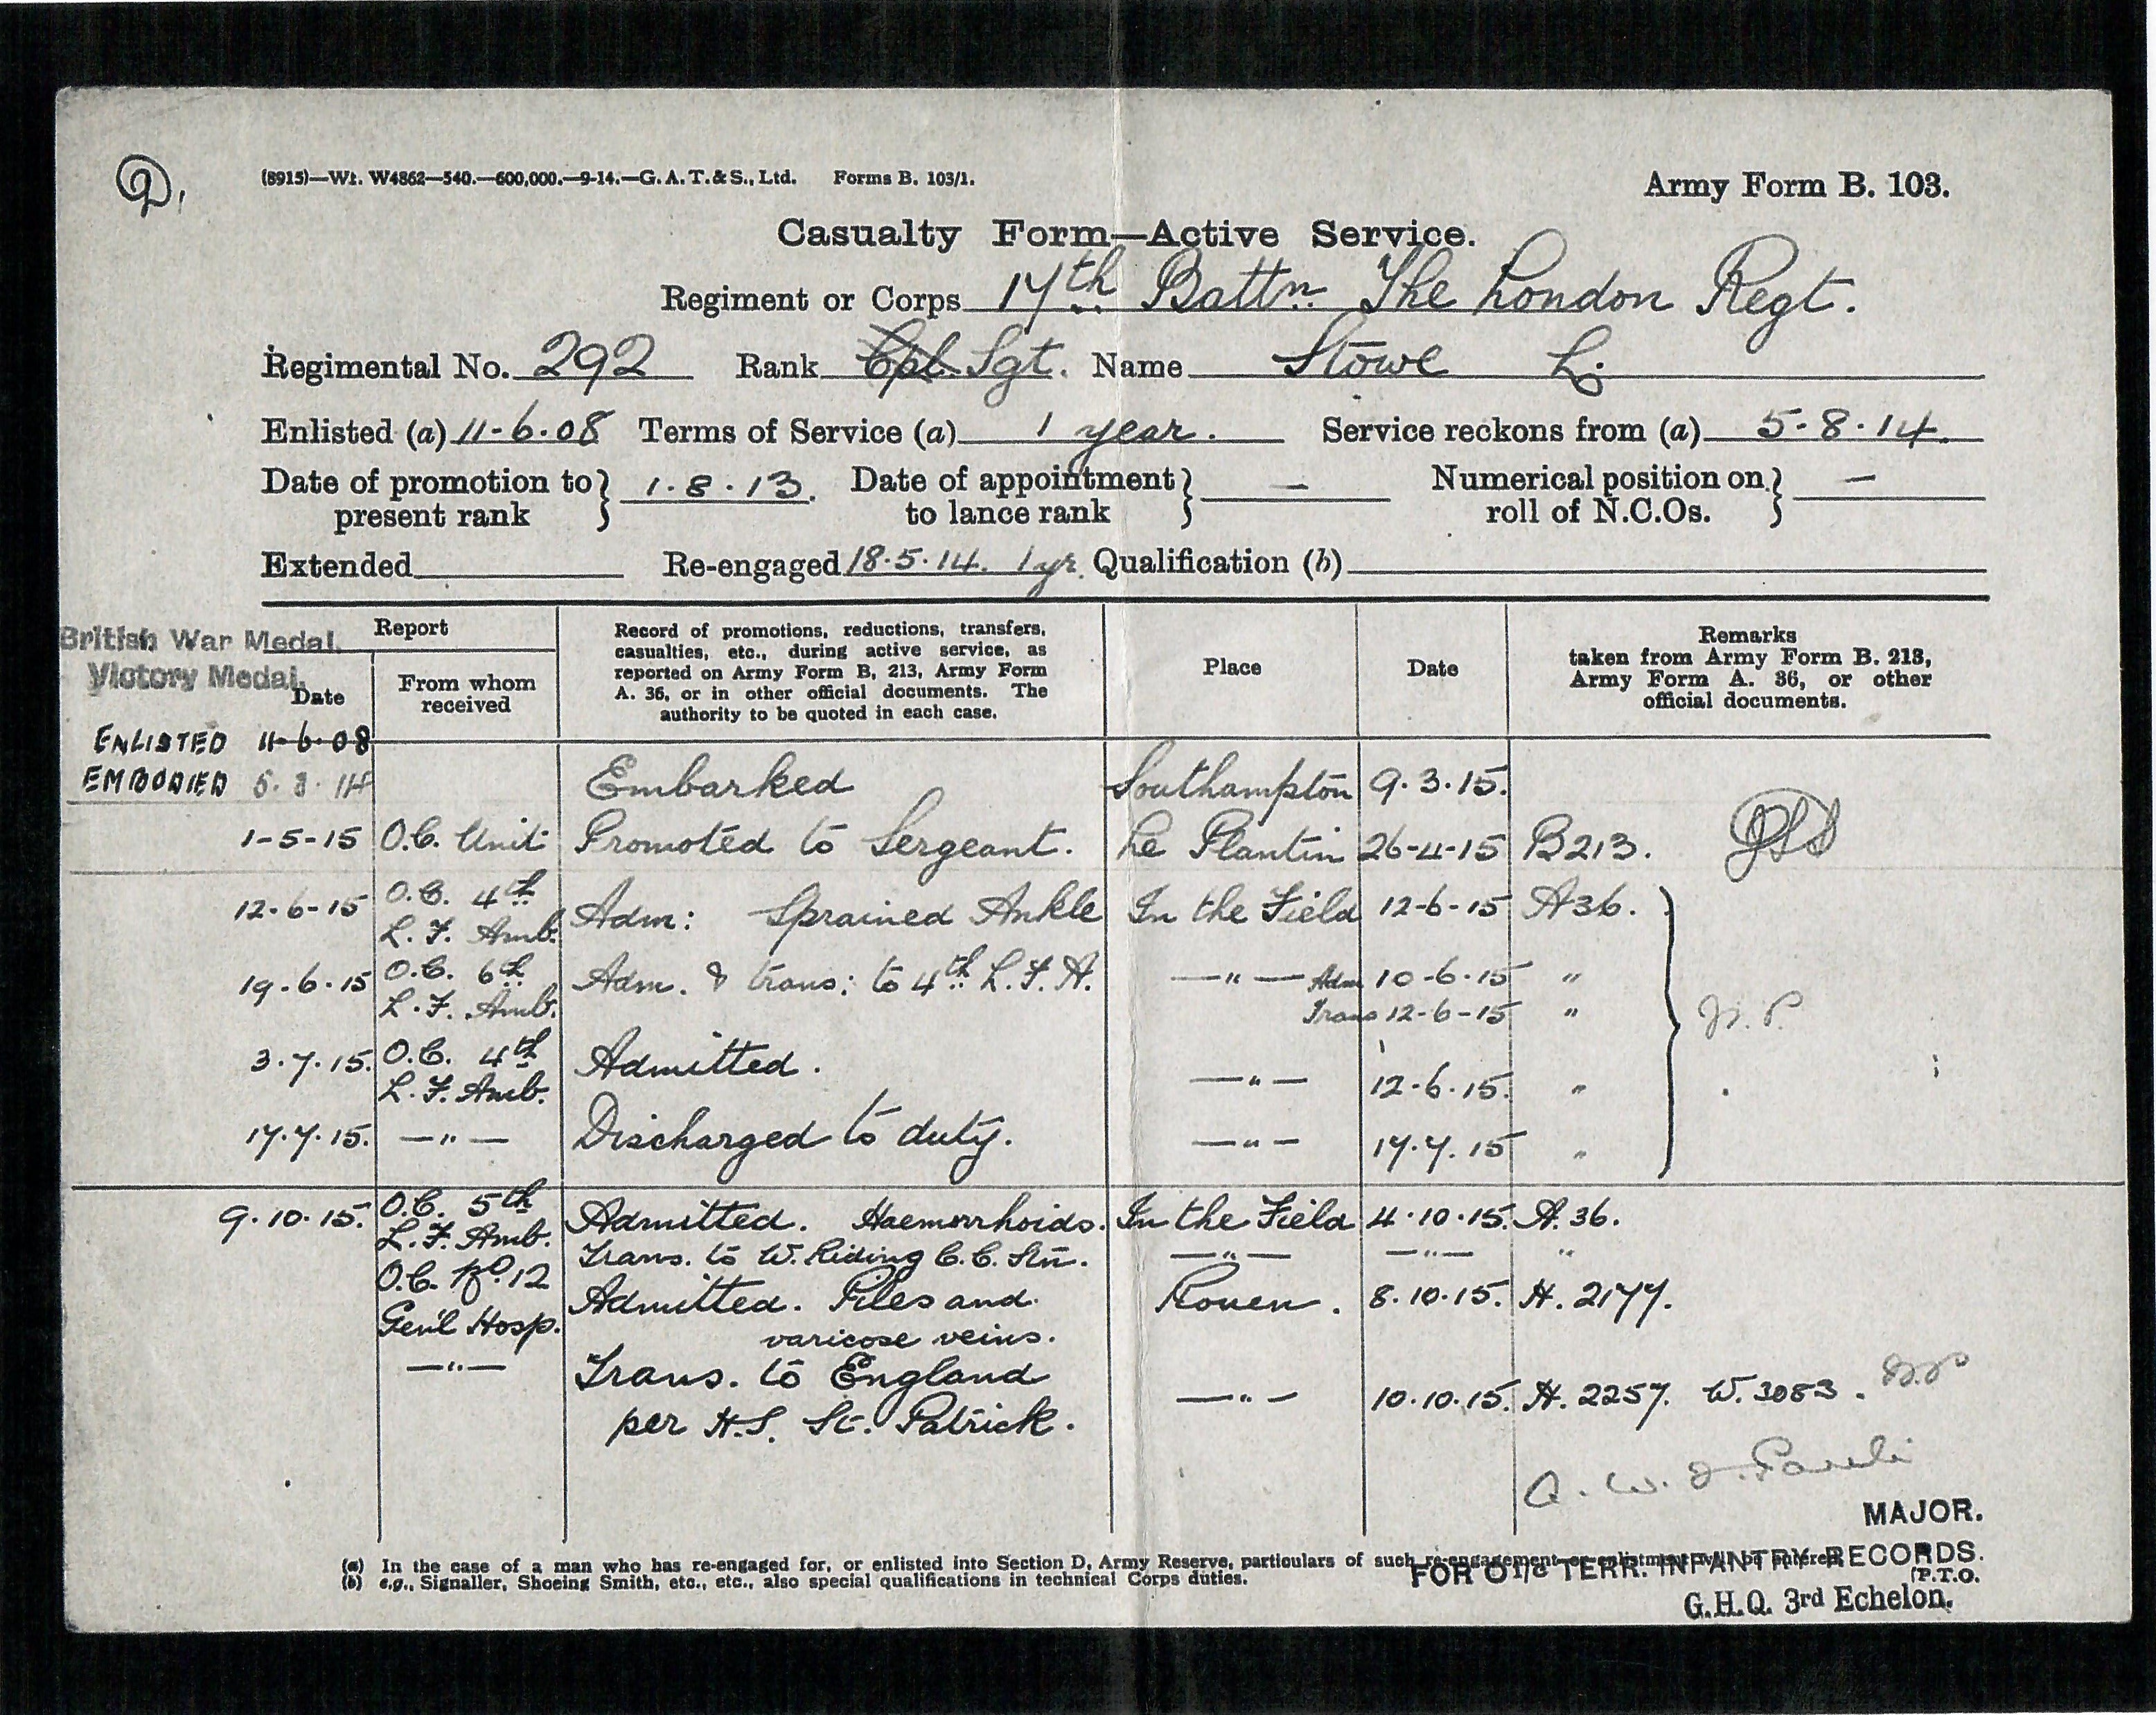 (8915)—Wt. W4862—540.—600,000.—9-14.—G. A. T. & S., Ltd. Forms B. 103/1.
Army Form B. 103.
Casualty Form—Active Service.
Regiment or Corps 17th Battn. The London Regt.
Regimental No. 292 Rank Cpl. Sgt. Name Stowe L.
Enlisted (a) 11-6-08 Terms of Service (a) 1 year. Service reckons from (a) 5-8-14.
Date of promotion to present rank } 1.8.13. Date of appointment to lance rank } — Numerical position on roll of N.C.Os. } —
Extended Re-engaged 18.5.14. 1 yr. Qualification (b)
British War Medal.
Victory Medal.
Report
Date
From whom received
Record of promotions, reductions, transfers,
casualties, etc., during active service, as
reported on Army Form B. 213, Army Form
A. 36, or in other official documents. The
authority to be quoted in each case.
Place
Date
Remarks
taken from Army Form B. 213,
Army Form A. 36, or other
official documents.
ENLISTED 11-6-08
EMBODIED 5.8.14
Embarked Southampton 9.3.15.
1-5-15 O.C. Unit Promoted to Sergeant. Le Plantin 26-4-15 B213.
12-6-15 O.C. 4th L. F. Amb. Adm: Sprained Ankle In the Field 12-6-15 A36.
19.6.15 O.C. 6th L. F. Amb. Adm. & trans: to 4th L. F. A. —"— Adm 10-6-15 "
Trans 12-6-15 "
3.7.15. O.C. 4th L. F. Amb. Admitted. —"— 12-6-15. "
17.7.15. —"— Discharged to duty. —"— 17.7.15 "
9.10.15. O.C. 5th L. F. Amb. Admitted. Haemorrhoids. In the Field 4.10.15. A. 36.
Trans. to W. Riding C. C. Stn. —"— —"— "
O.C. No. 12 Gen'l Hosp. Admitted. Piles and varicose veins. Rouen. 8.10.15. H. 2177.
—"— Trans. to England per H.S. St. Patrick. —"— 10.10.15. H. 2257. W. 3083.
MAJOR.
FOR O I/c TERR. INFANTRY RECORDS.
G.H.Q. 3rd Echelon.
(a) In the case of a man who has re-engaged for, or enlisted into Section D, Army Reserve, particulars of such re-engagement or enlistment will be entered.
(b) e.g., Signaller, Shoeing Smith, etc., etc., also special qualifications in technical Corps duties.
(P.T.O.